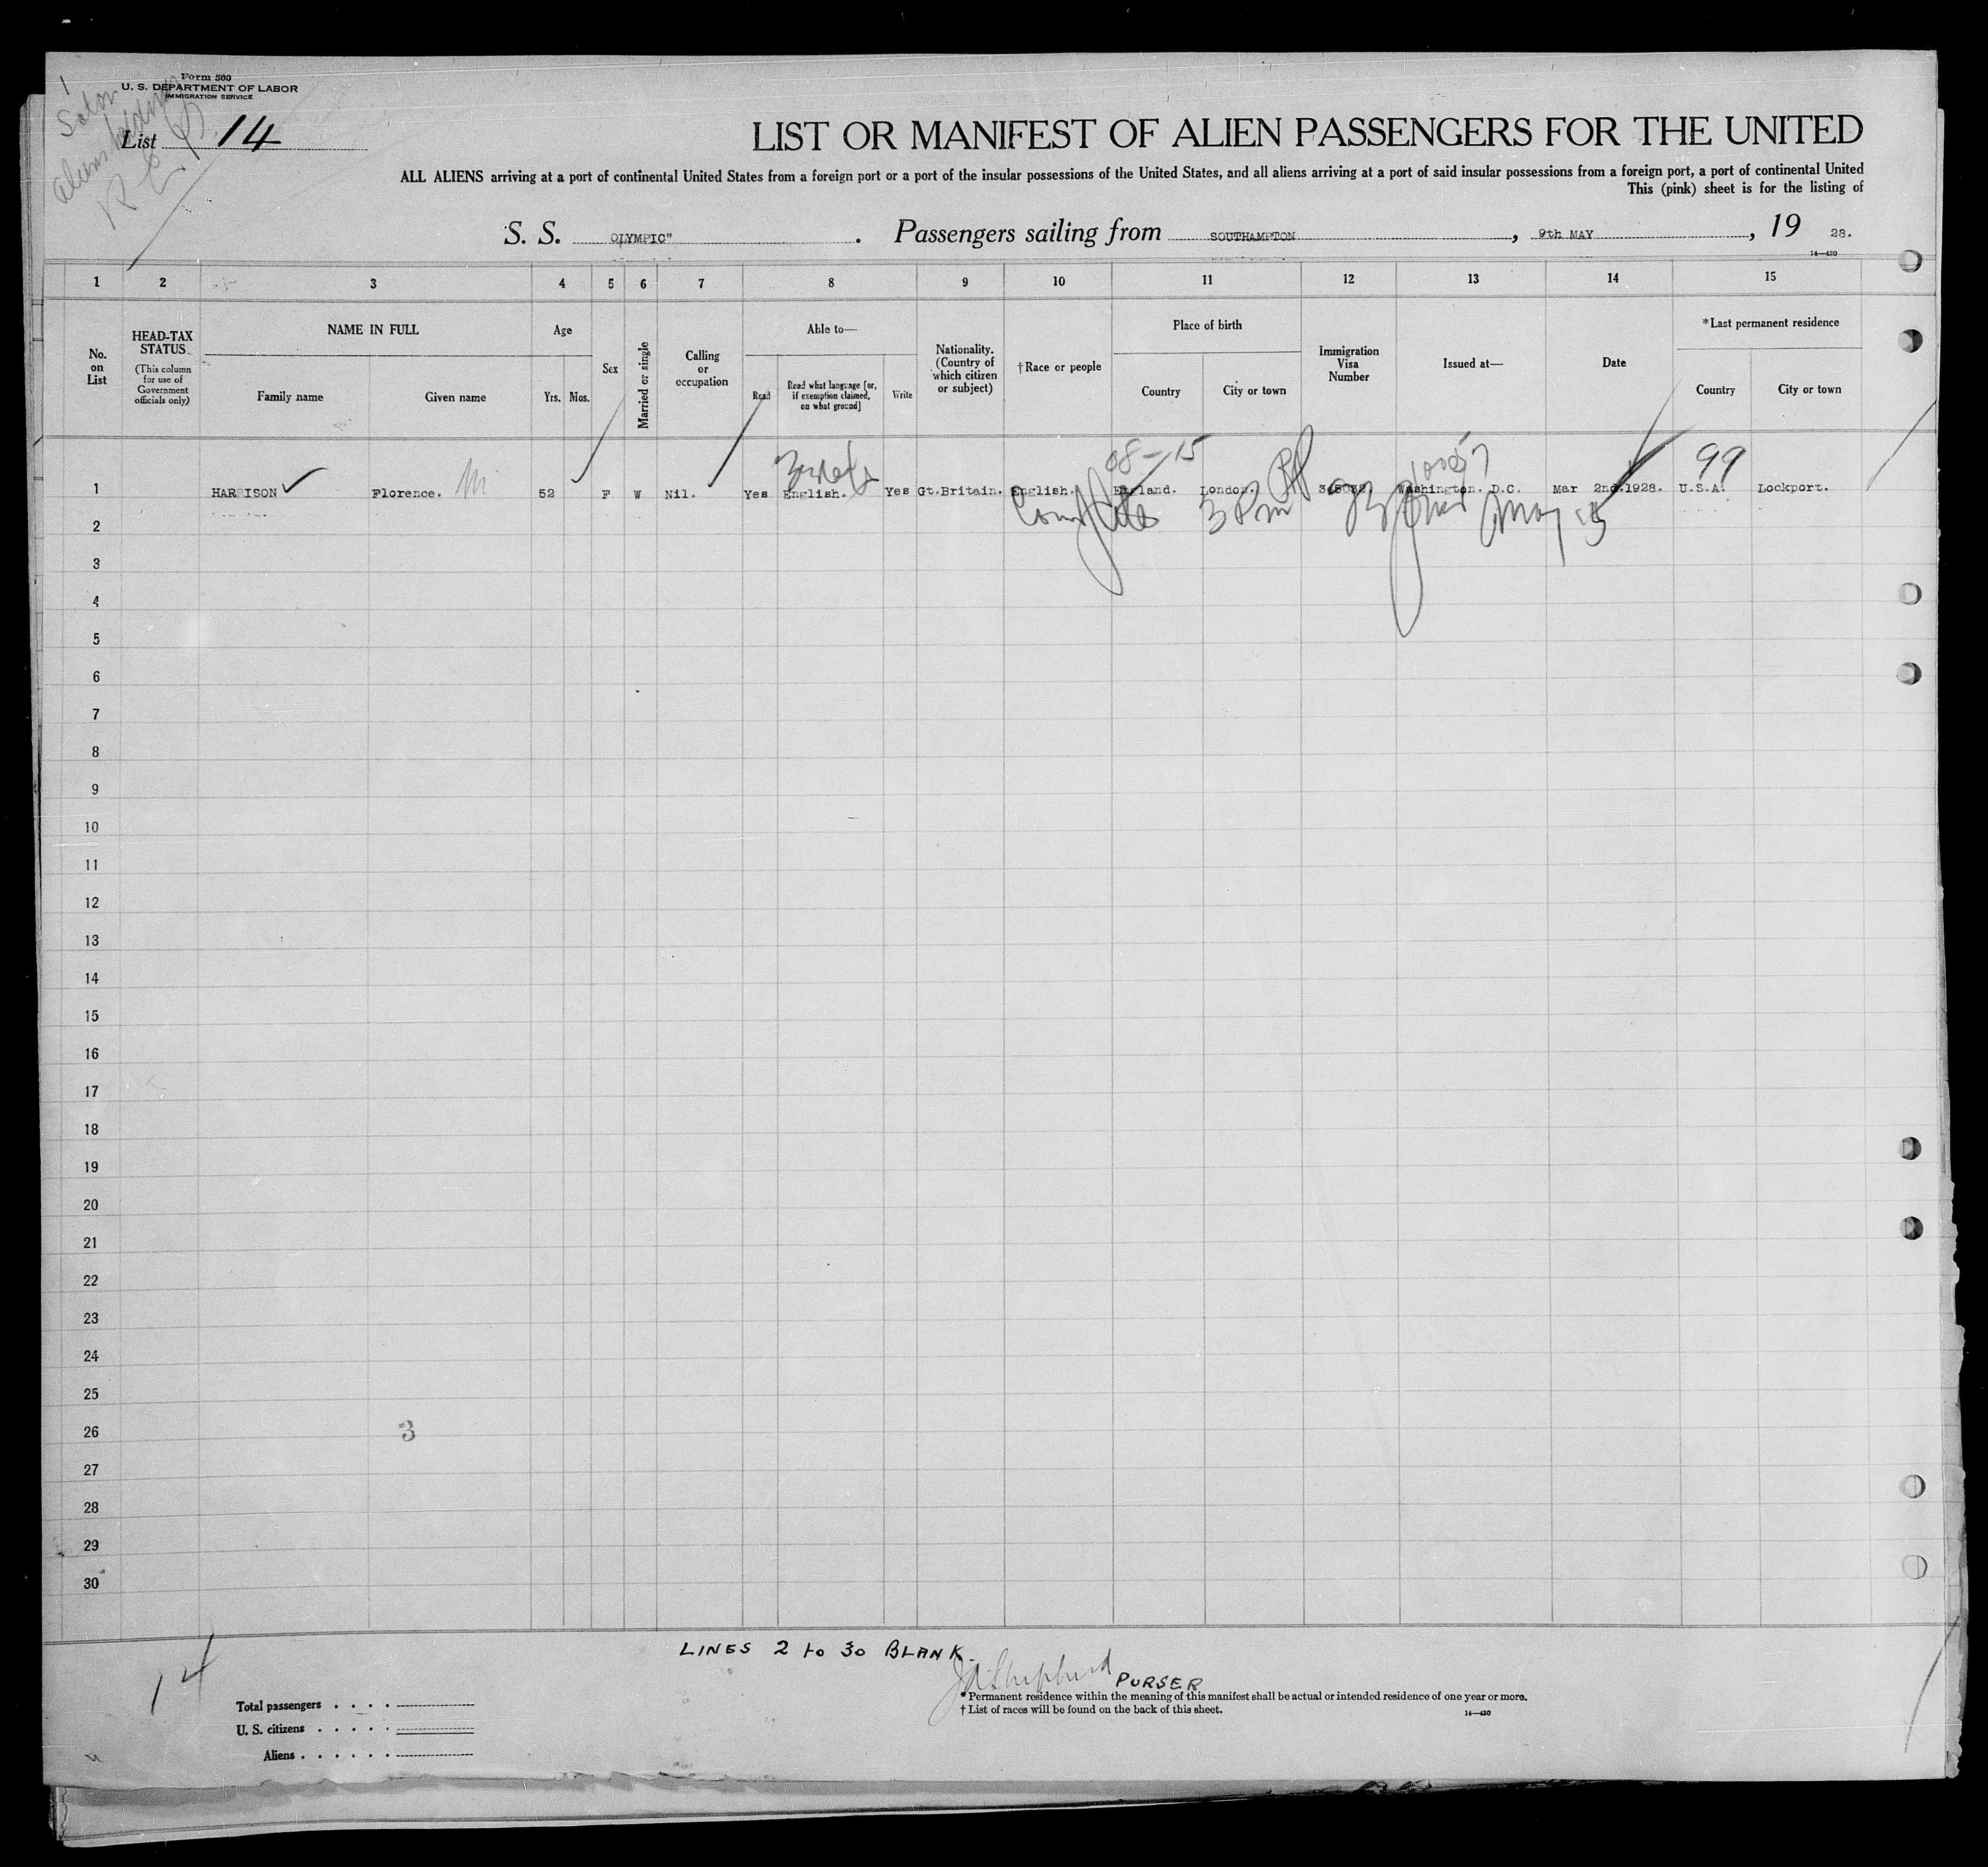 Form 500
U. S. DEPARTMENT OF LABOR
IMMIGRATION SERVICE
List 14
LIST OR MANIFEST OF ALIEN PASSENGERS FOR THE UNITED
ALL ALIENS arriving at a port of continental United States from a foreign port or a port of the insular possessions of the United States, and all aliens arriving at a port of said insular possessions from a foreign port, a port of continental United
This (pink) sheet is for the listing of
S. S. OLYMPIC" . Passengers sailing from SOUTHAMPTON , 9th MAY , 19 28.
14—430
1 2 3 4 5 6 7 8 9 10 11 12 13 14 15
No. on List
HEAD-TAX STATUS
(This column for use of Government officials only)
NAME IN FULL
Family name Given name
Age
Yrs. Mos.
Sex
Married or single
Calling or occupation
Able to—
Read
Read what language [or, if exemption claimed, on what ground]
Write
Nationality. (Country of which citizen or subject)
†Race or people
Place of birth
Country City or town
Immigration Visa Number
Issued at—
Date
*Last permanent residence
Country City or town
08-15
99
1 HARRISON Florence. 52 F W Nil. Yes English. Yes Gt.Britain. English. England. London. Washington. D.C. Mar 2nd.1928. U.S.A. Lockport.
3 Pm May 15
2
3
4
5
6
7
8
9
10
11
12
13
14
15
16
17
18
19
20
21
22
23
24
25
26
3
27
28
29
30
LINES 2 to 30 BLANK.
PURSER
14
Total passengers . . . .
U. S. citizens . . . . .
Aliens . . . . . .
* Permanent residence within the meaning of this manifest shall be actual or intended residence of one year or more.
† List of races will be found on the back of this sheet.
14—430